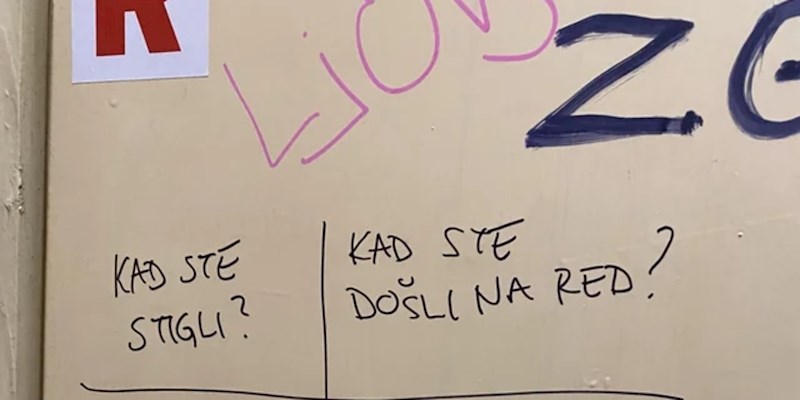 R
LJOB
ZG
KAD STE
STIGLI?
KAD STE
DOŠLI NA RED?